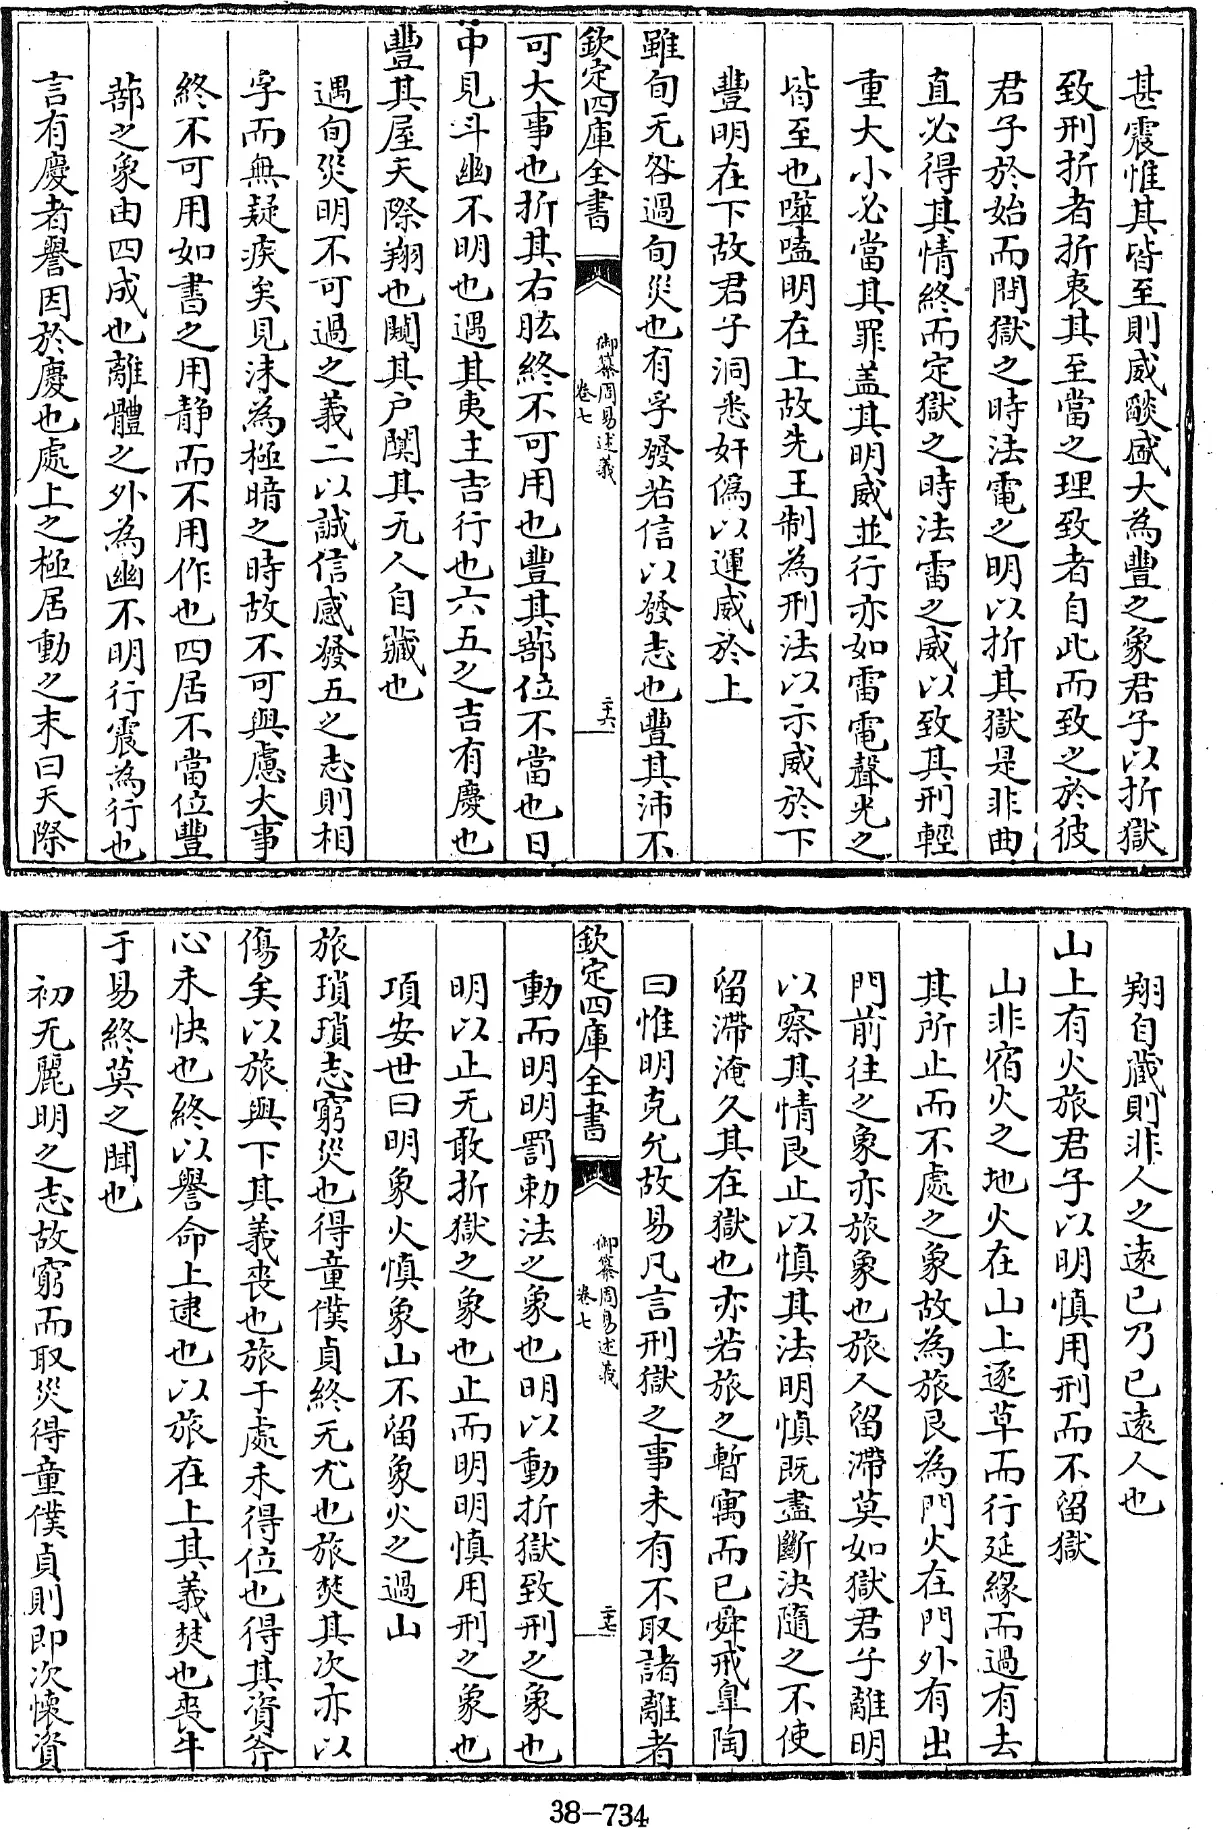 甚震惟其皆至則威燄盛大為豐之象君子以折獄
致刑折者折衷其至當之理致者自此而致之於彼
君子於始而問獄之時法電之明以折其獄是非曲
直必得其情終而定獄之時法雷之威以致其刑輕
重大小必當其罪盖其明威並行亦如雷電聲光之
皆至也噬嗑明在上故先王制為刑法以示威於下
豐明在下故君子洞悉奸偽以運威於上
雖旬无咎過旬災也有孚發若信以發志也豐其沛不
欽定四庫全書
御纂周易述義
卷七
二十六
可大事也折其右肱終不可用也豐其蔀位不當也日
中見斗幽不明也遇其夷主吉行也六五之吉有慶也
豐其屋天際翔也闚其戶闃其无人自藏也
遇旬災明不可過之義二以誠信感發五之志則相
孚而無疑疾矣見沬為極暗之時故不可興慮大事
終不可用如書之用靜而不用作也四居不當位豐
蔀之象由四成也離體之外為幽不明行震為行也
言有慶者譽因於慶也處上之極居動之末曰天際
翔自藏則非人之遠已乃已遠人也
山上有火旅君子以明慎用刑而不留獄
山非宿火之地火在山上逐草而行延緣而過有去
其所止而不處之象故為旅艮為門火在門外有出
門前往之象亦旅象也旅人留滯莫如獄君子離明
以察其情艮止以慎其法明慎既盡斷決隨之不使
留滯淹久其在獄也亦若旅之暫寓而已舜戒臯陶
曰惟明克允故易凡言刑獄之事未有不取諸離者
欽定四庫全書
御纂周易述義
卷七
二十七
動而明明罰勅法之象也明以動折獄致刑之象也
明以止无敢折獄之象也止而明明慎用刑之象也
項安世曰明象火慎象山不留象火之過山
旅瑣瑣志窮災也得童僕貞終无尤也旅焚其次亦以
傷矣以旅與下其義喪也旅于處未得位也得其資斧
心未快也終以譽命上逮也以旅在上其義焚也喪牛
于易終莫之聞也
初无麗明之志故窮而取災得童僕貞則即次懷資
38-734